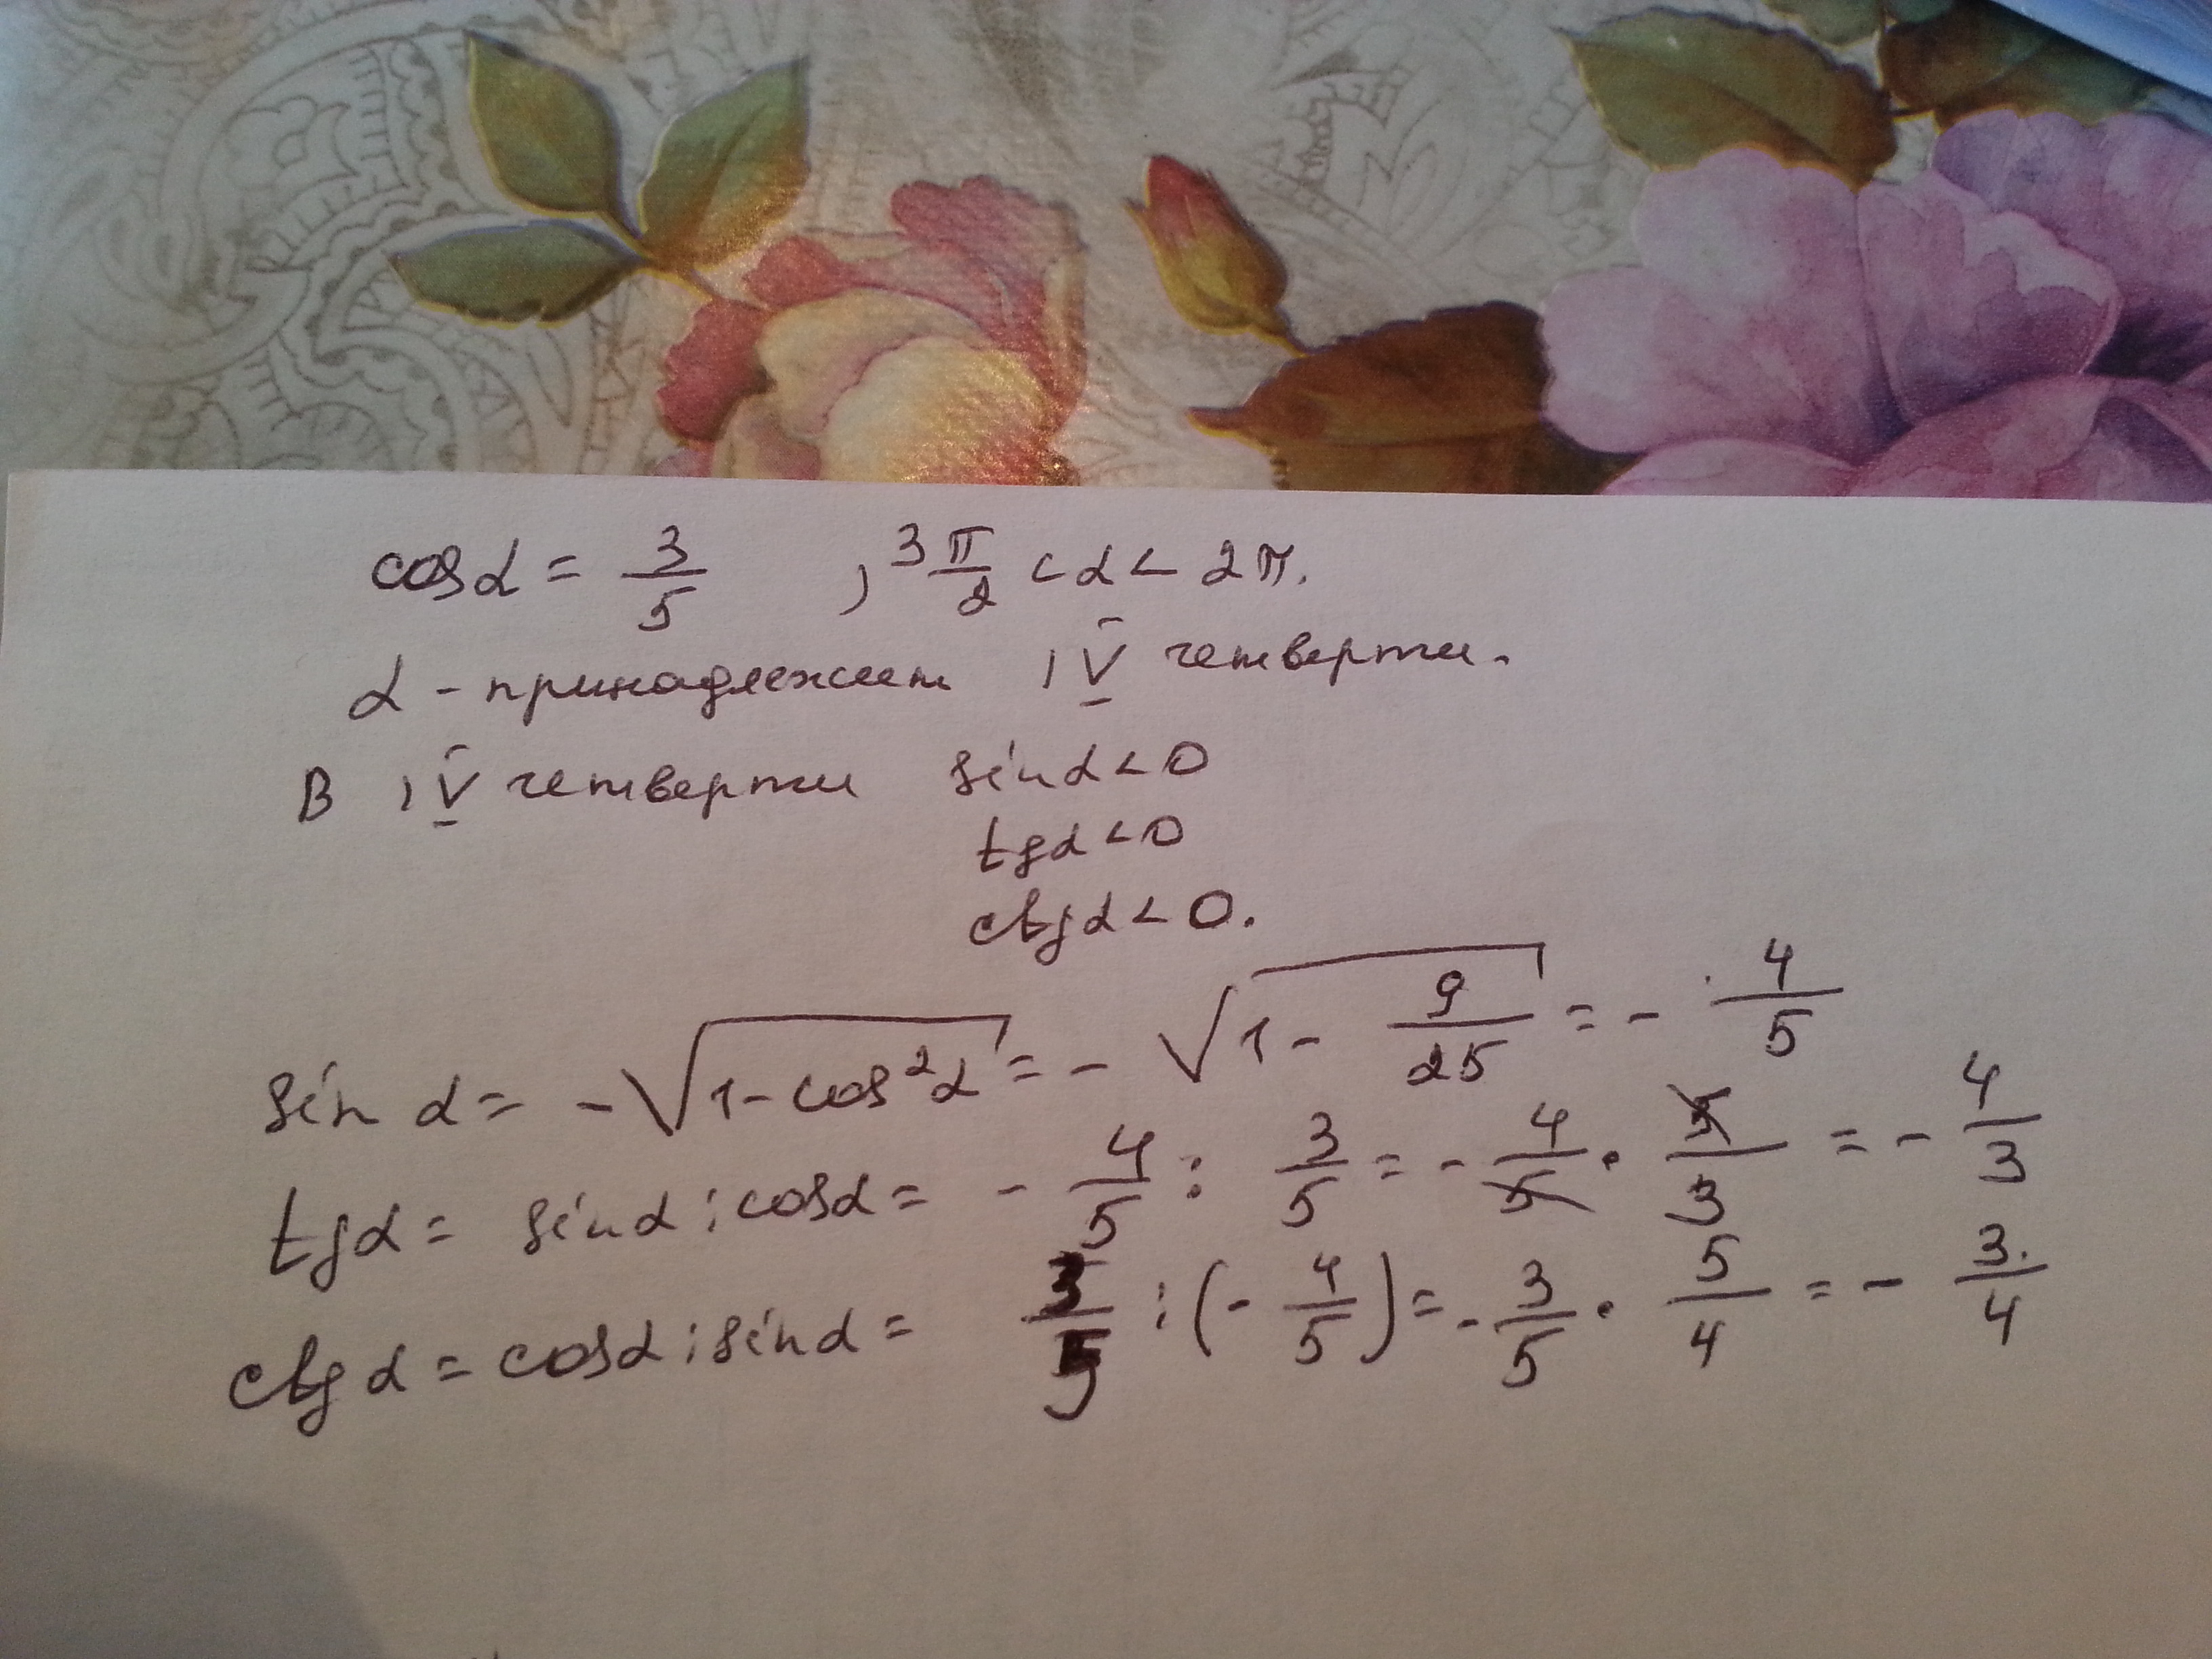 cosα = 3/5 , 3π/2 < α < 2π.
α - принадлежит IV четверти.
В IV четверти sinα < 0
tgα < 0
ctgα < 0.
sin α = -√(1-cos²α) = -√(1 - 9/25) = - 4/5
tgα = sinα : cosα = - 4/5 : 3/5 = - 4/5 · 5/3 = - 4/3
ctgα = cosα : sinα = 3/5 : (- 4/5) = - 3/5 · 5/4 = - 3/4